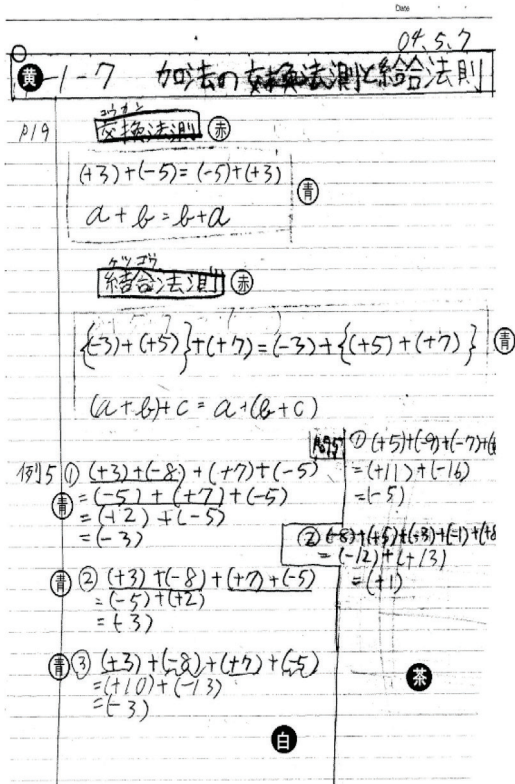 Date
04.5.7
黄 1-7 加法の交換法測と結合法則
P19
コウカン
交換法測 赤
(+3)+(-5)=(-5)+(+3)
青
a+b=b+a
ケツゴウ
結合法則 赤
{(-3)+(+5)}+(+7)=(-3)+{(+5)+(+7)} 青
(a+b)+c=a+(b+c)
例5 ① (+3)+(-8)+(+7)+(-5)
青
=(-5)+(+7)+(-5)
=(+2)+(-5)
=(-3)
青 ② (+3)+(-8)+(+7)+(-5)
=(-5)+(+2)
=(-3)
青 ③ (+3)+(-8)+(+7)+(-5)
=(+10)+(-13)
=(-3)
① (+5)+(-9)+(-7)+(
=(+11)+(-16)
=(-5)
② (-8)+(+5)+(-3)+(-1)+(+8
=(-12)+(+13)
=(+1)
茶
白